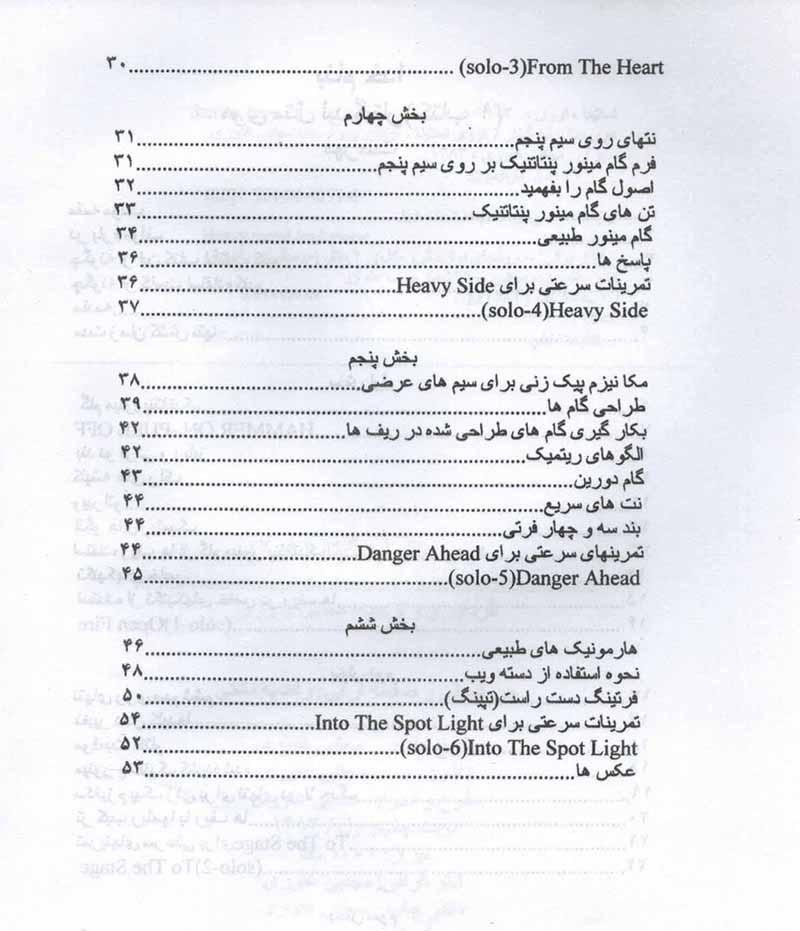 (solo-3)From The Heart..........۳۰
بخش چهارم
نتهای روی سیم پنجم..........۳۱
فرم گام مینور پنتاتنیک بر روی سیم پنجم..........۳۱
اصول گام را بفهمید..........۳۲
تن های گام مینور پنتاتنیک..........۳۳
گام مینور طبیعی..........۳۴
پاسخ ها..........۳۶
تمرینات سرعتی برای Heavy Side..........۳۶
(solo-4)Heavy Side..........۳۷
بخش پنجم
مکا نیزم پیک زنی برای سیم های عرضی..........۳۸
طراحی گام ها..........۳۹
بکار گیری گام های طراحی شده در ریف ها..........۴۲
الگوهای ریتمیک..........۴۲
گام دورین..........۴۳
نت های سریع..........۴۴
بند سه و چهار فرتی..........۴۴
تمرینهای سرعتی برای Danger Ahead..........۴۴
(solo-5)Danger Ahead..........۴۵
بخش ششم
هارمونیک های طبیعی..........۴۶
نحوه استفاده از دسته ویب..........۴۸
فرتینگ دست راست(تپینگ)..........۵۰
تمرینات سرعتی برای Into The Spot Light..........۵۴
(solo-6)Into The Spot Light..........۵۲
عکس ها..........۵۳